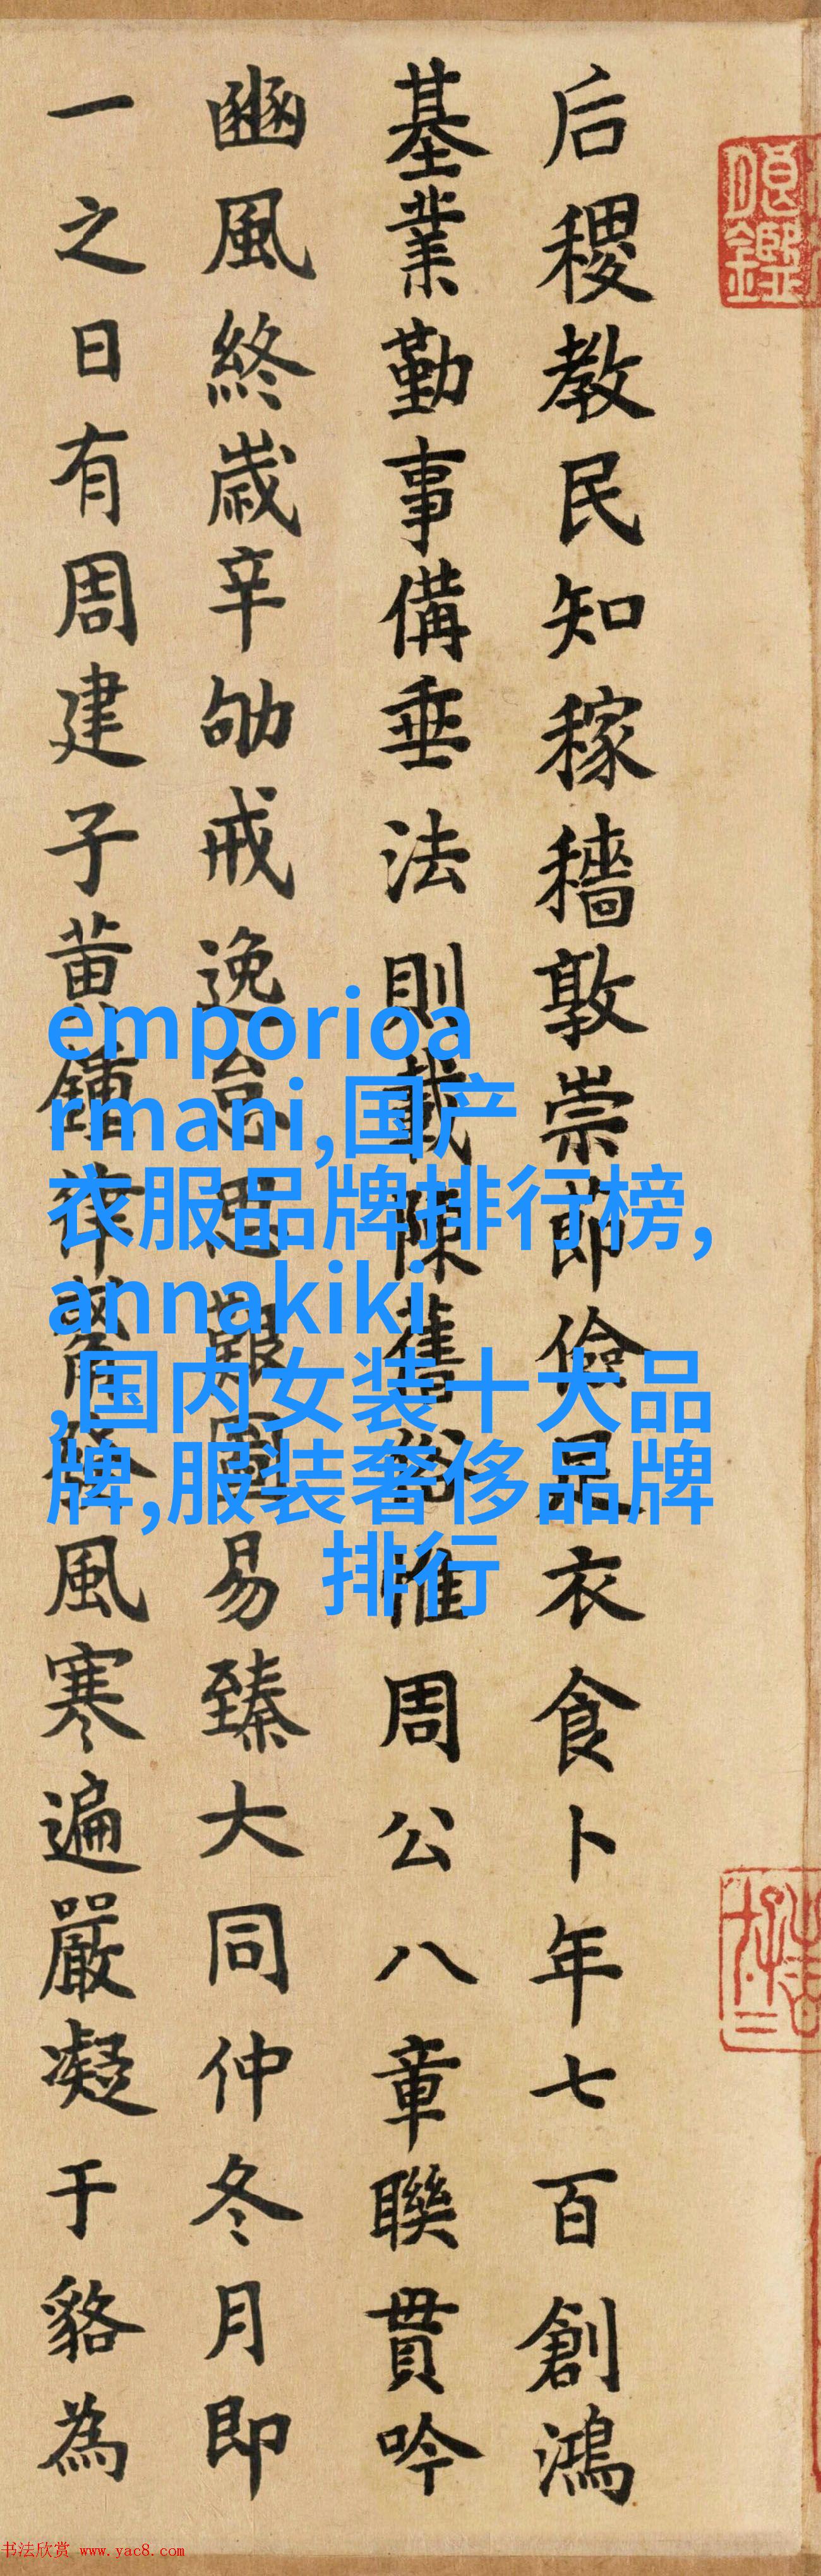 后稷教民知稼穡敦崇節儉足衣食卜年七百創鴻
基業勤事備垂法則載陳舊俗惟周公八章聯貫吟
豳風終歲辛劬戒逸怠思艱圖易臻大同仲冬月即
一之日有周建子黃鍾律觱發風寒遍嚴凝于貉為
emporioa
rmani,国产
衣服品牌排行榜,
annakiki
,国内女装十大品
牌,服装奢侈品牌
排行
书法欣赏 www.yac8.com